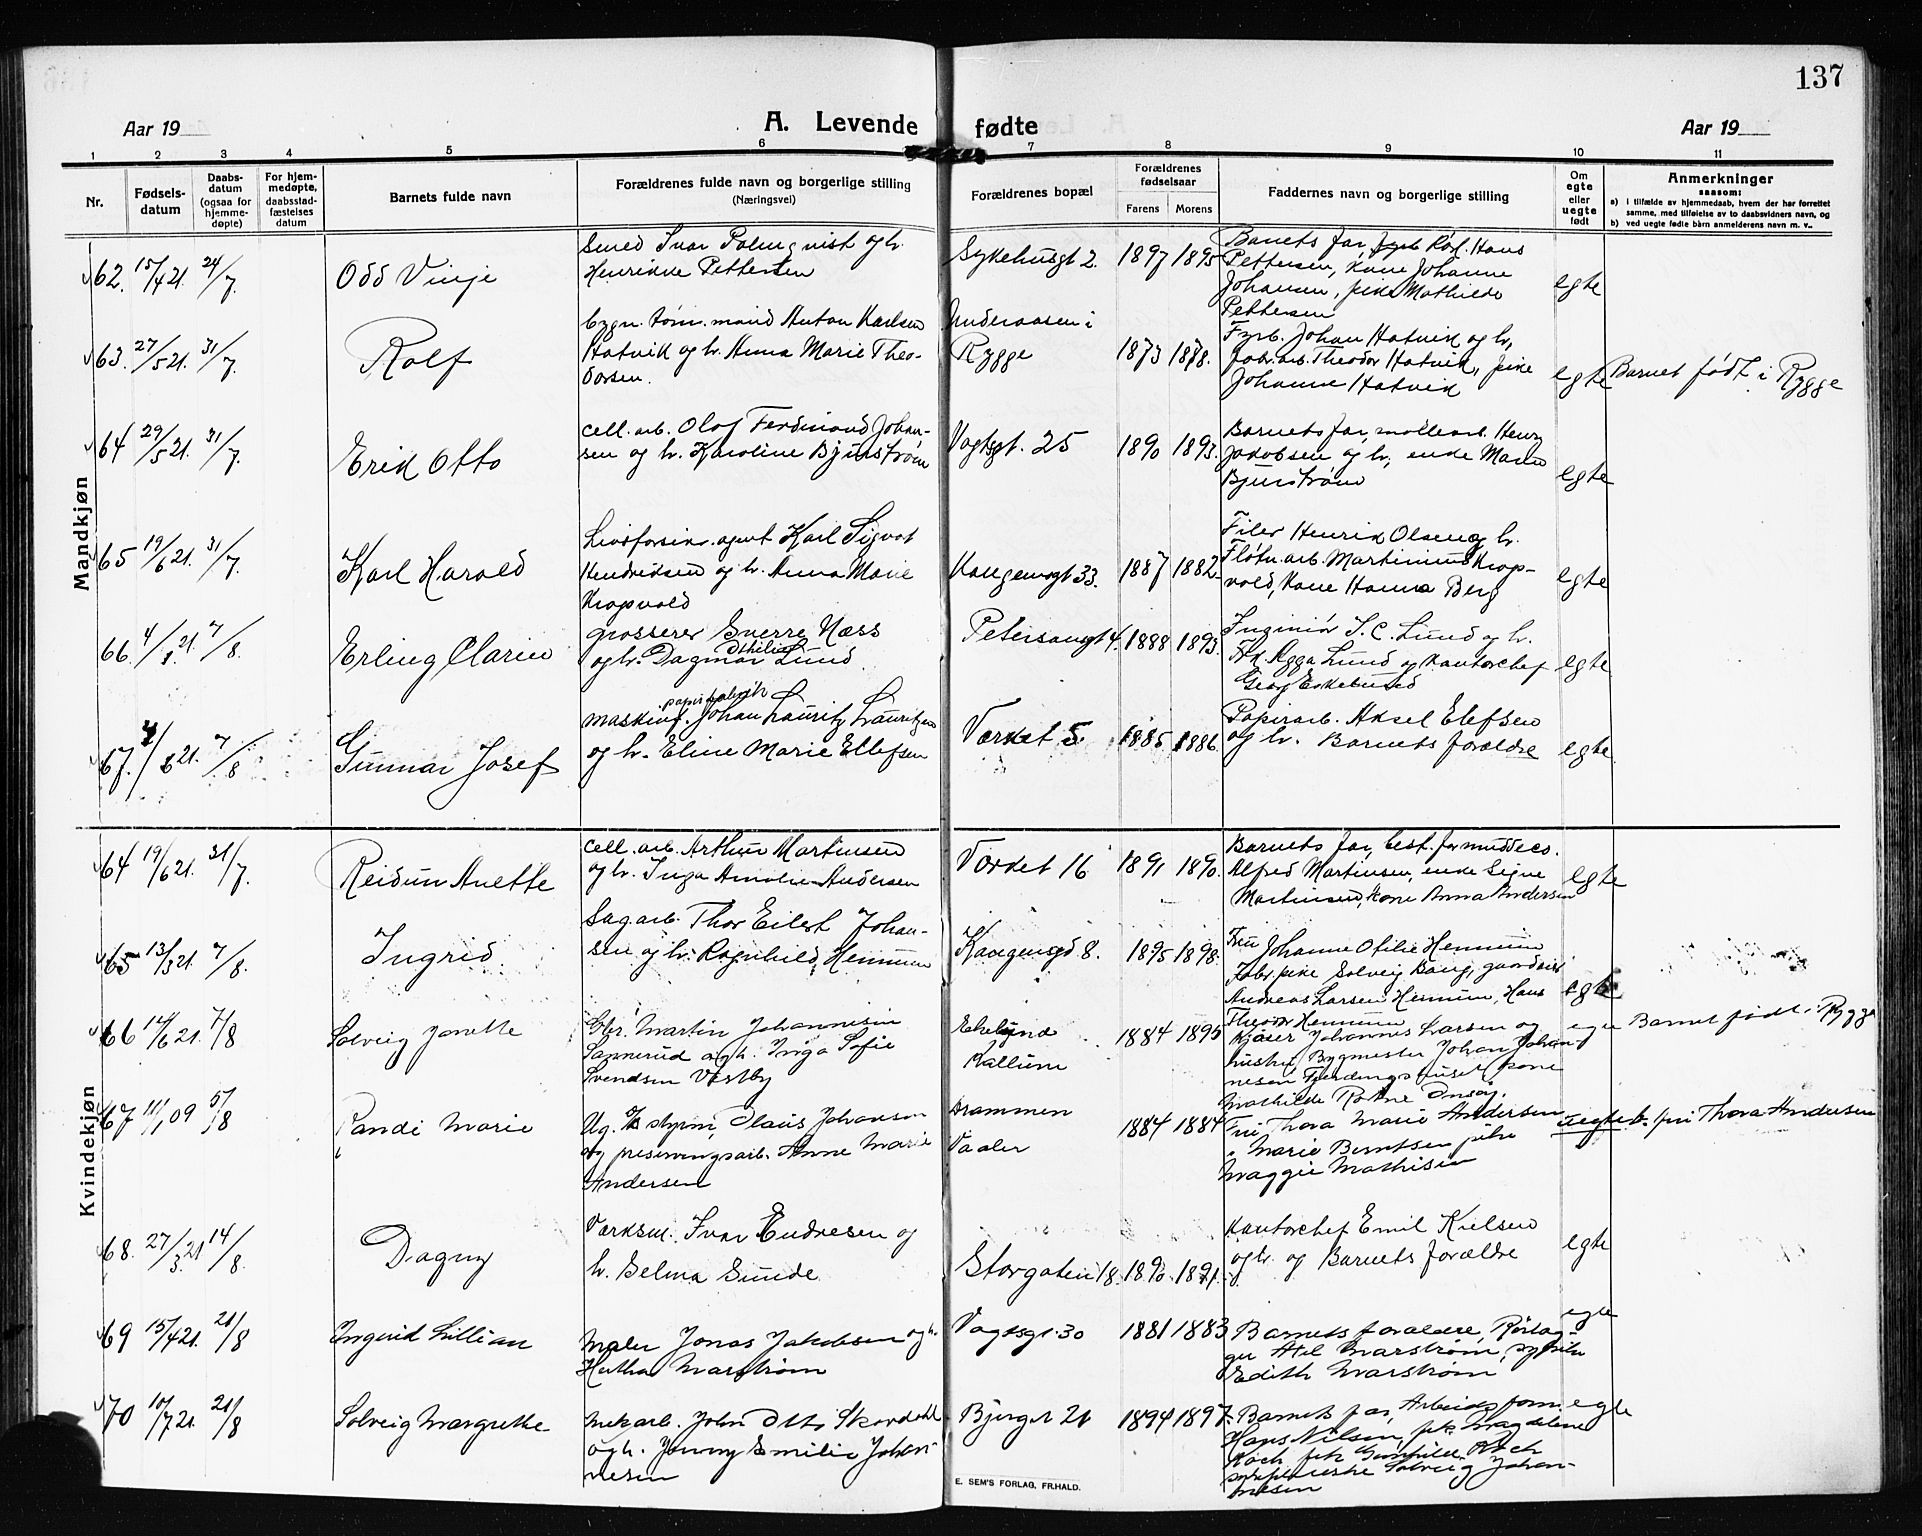 137
Aar 19
A. Levende fødte
Aar 19
1 2 3 4 5 6 7 8 9 10 11
Nr.
Fødsels-
datum
Daabs-
datum
(ogsaa for
hjemme-
døpte)
For hjem-
medøpte,
daabsstad-
fæstelses
datum
Barnets fulde navn
Forældrenes fulde navn og borgerlige stilling
(Næringsvei)
Forældrenes bopæl
Forældrenes
fødselsaar
Farens Morens
Faddernes navn og borgerlige stilling
Om
egte
eller
uegte
født
Anmerkninger
saasom:
a) i tilfælde av hjemmedaab, hvem der har forrettet
samme, med tilføielse av to daabsvidners navn, og
b) ved uegte fødte børn anmelderens navn m. v..
Mandkjøn
62. 15/4 21. 24/7. Odd Vinje
Smed Ivar Palmqvist og h.
Henrikke Pettersen
Sykehusgt 2. 1897 1895
Barnets far, Hans
Pettersen, kone Johanne
Johansen, pike Mathilde
Pettersen
egte
63. 27/5 21. 31/7. Rolf
bygn. tøm. mand Anton Karlsen
Hatvik og h. Anna Marie Theo-
dorsen.
i
Rygge
1873 1878.
Fyrb. Johan Hatvik og h,
fabr. arb. Theodor Hatvik, pike
Johanne Hatvik
egte Barnet født i Rygge
64 29/5 21. 31/7. Erik Otto
cell. arb. Olaf Ferdinand Johan-
sen og h. Karoline Bjurstrøm
Vogtsgt. 25 1890 1893.
Barnets far, møllearb. Henry
Jakobsen og h, enke Marie
Bjurstrøm
egte
65 19/6 21. 31/7. Karl Harald
Livsforsikr. agent Karl Sigvat
Hendriksen og h. Anna Marie
Kropvold
33. 1887 1882
Filer Henrik Olsen og h.
Fløtn. arb. Martinius Krop-
vold, kone Hanna Berg
egte
66. 4/ 21. 7/8. Erling Clarin
grosserer Sverre Næss
og h. Dagmar Othilie Lund.
4. 1888 1893.
Ingeniør I. C. Lund og h.
Frk Agga Lund og kontorchef
Georg
egte
67. / 21. 7/8 Gunnar Josef
maskinf. papirfabrik Johan Lauritz Lauritzen
og h. Eline Marie Ellefsen
Værket 5 1885 1886
Papirarb. Aksel Elefsen
og h. Barnets forældre
egte
Kvindekjøn
64 19/6 21. 31/7. Reidun Anette
cell. arb. Arthur Martinsen
og h. Inga Amalie Andersen
Værket 16 1891 1890.
Barnets far, best.
Alfred Martinsen, enke Signe
Martinsen, kone Anna Andersen
egte
65 13/3 21. 7/8. Ingrid
Sagarb. Thor Eilert Johan-
sen og h. Ragnhild Hennum
8. 1895 1898.
Fru Johanne Otilie Hennum
Fabr. pike Solveig Bang,
Andreas Larsen Hennum, Hans
Theodor Hennum
egte
66 14/6 21. 7/8 Solveig Janette
Gbr. Martin Johannesen
Sannerud og h. Inga Sofie
Svendsen Vestby
Ekelund
Kallum
1884 1895
Kjøser Johannes Larsen og
hustru, Bygmester Johan Johan-
nesen Fjerdingshuset kone
Mathilde Onsøy
egte Barnet født i Rygge
67 11/1 09 5/8 Randi Marie
Ug. styrm, Claus Johansen
og preserveringsarb. Anne Marie
Andersen
Drammen
Vaaler
1884 1884
Fru Thora Marie Andersen
Marie Berntsen pike
Maggie Mathisen
uegte b. fru Thora Andersen
68. 27/3 21 14/8. Dagny
Værksm. Ivar Endresen og
h. Selma Sunde
Storgaten 18. 1890. 1891.
Kontorchef Emil Nielsen
og h. og Barnets forældre
egte
69 15/4 21. 21/8 Ingrid Lillian
Maler Jonas Jakobsen og h.
Hertha Marstrøm
Vogtsgt. 30 1881 1883
Barnets forældre, Rørlæg-
ger Marstrøm, sypike
Edith Marstrøm
egte
70 10/7 21. 21/8 Solveig Margrethe
Mek arb. John Otto Skovdahl
og h. Jenny Emilie Johan-
nesen
Bjergt 21 1894 1897.
Barnets far, Arbeidsform.
Hans Nilsen, pk. Magdalene
Koch pike Gunhilde Koch
Solveig Johan-
nesen
egte
E. SEM'S FORLAG, FR.HALD.